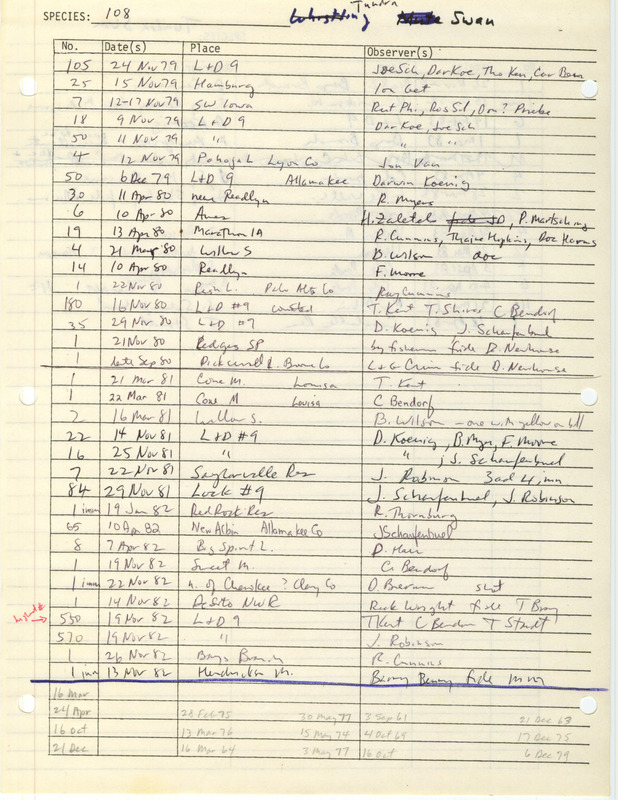 SPECIES: 108 Whistling Tundra Swan
No. Date(s) Place Observer(s)
105 24 Nov 79 L+D 9 Joe Sch, Dar Koe, Tho Ken, Car Ben
25 15 Nov 79 Hamburg Ion Get
7 12-17 Nov 79 SW Iowa Rut Phi, Ros Sil, Don? Priebe
18 9 Nov 79 L+D 9 Dar Koe, Joe Sch
50 11 Nov 79 " " "
4 12 Nov 79 Lyon Co Jon Van
50 6 Dec 79 L+D 9 Allamakee Darwin Koenig
30 11 Apr 80 near Readlyn R. Myers
6 10 Apr 80 Ames H. Zaletel fide JD, P. Martsching
19 13 Apr 80 Marathon IA R. Cummins, Thaine Hopkins, Doc Harms
4 21 Mar 80 Willow S B. Wilson doc
14 10 Apr 80 Readlyn F. Moore
1 22 Nov 80 Rush L. Palo Alto Co Ray Cummins
180 16 Nov 80 L+D #9 counted T. Kent T. Shires C Bendorf
35 29 Nov 80 L+D #9 D. Koenig J. Schaufenbuel
1 21 Nov 80 Ledges SP by fisherman fide D. Newhouse
1 late Sep 80 Co L+G Crim fide D. Newhouse
1 21 Mar 81 Cone M. Louisa T. Kent
1 22 Mar 81 Cone M Louisa C Bendorf
2 16 Mar 81 Willow S. B. Wilson - one with yellow on bill
22 14 Nov 81 L+D #9 D. Koenig, B. Myer, F. Moore
16 25 Nov 81 " " ; J. Schaufenbuel
7 22 Nov 81 Saylorville Res J. Robinson 3 ad 4 imm
84 29 Nov 81 Lock #9 J. Schaufenbuel, J. Robinson
1 imm 19 Jan 82 Red Rock Res R. Thornburg
65 10 Apr 82 New Albin Allamakee Co J Schaufenbuel
8 7 Apr 82 Big Spirit L. D. Harr
1 19 Nov 82 Sweet M. C. Bendorf
1 imm 22 Nov 82 n. of Cherokee ? Clay Co D. Bierman shot
1 14 Nov 82 DeSoto NWR Rick Wright fide T Bray
highest # → 530 19 Nov 82 L+D 9 T Kent C Bendorf T Staudt
570 19 Nov 82 " J. Robinson
1 26 Nov 82 Bays Branch R. Cummins
1 imm 13 Nov 82 Hendrickson M. Barny Benny fide
16 Mar
24 Apr 28 Feb 75 30 May 77 3 Sep 61 21 Dec 68
16 Oct 13 Mar 76 15 May 74 4 Oct 65 17 Dec 75
21 Dec 16 Mar 64 3 May 77 16 Oct 6 Dec 79